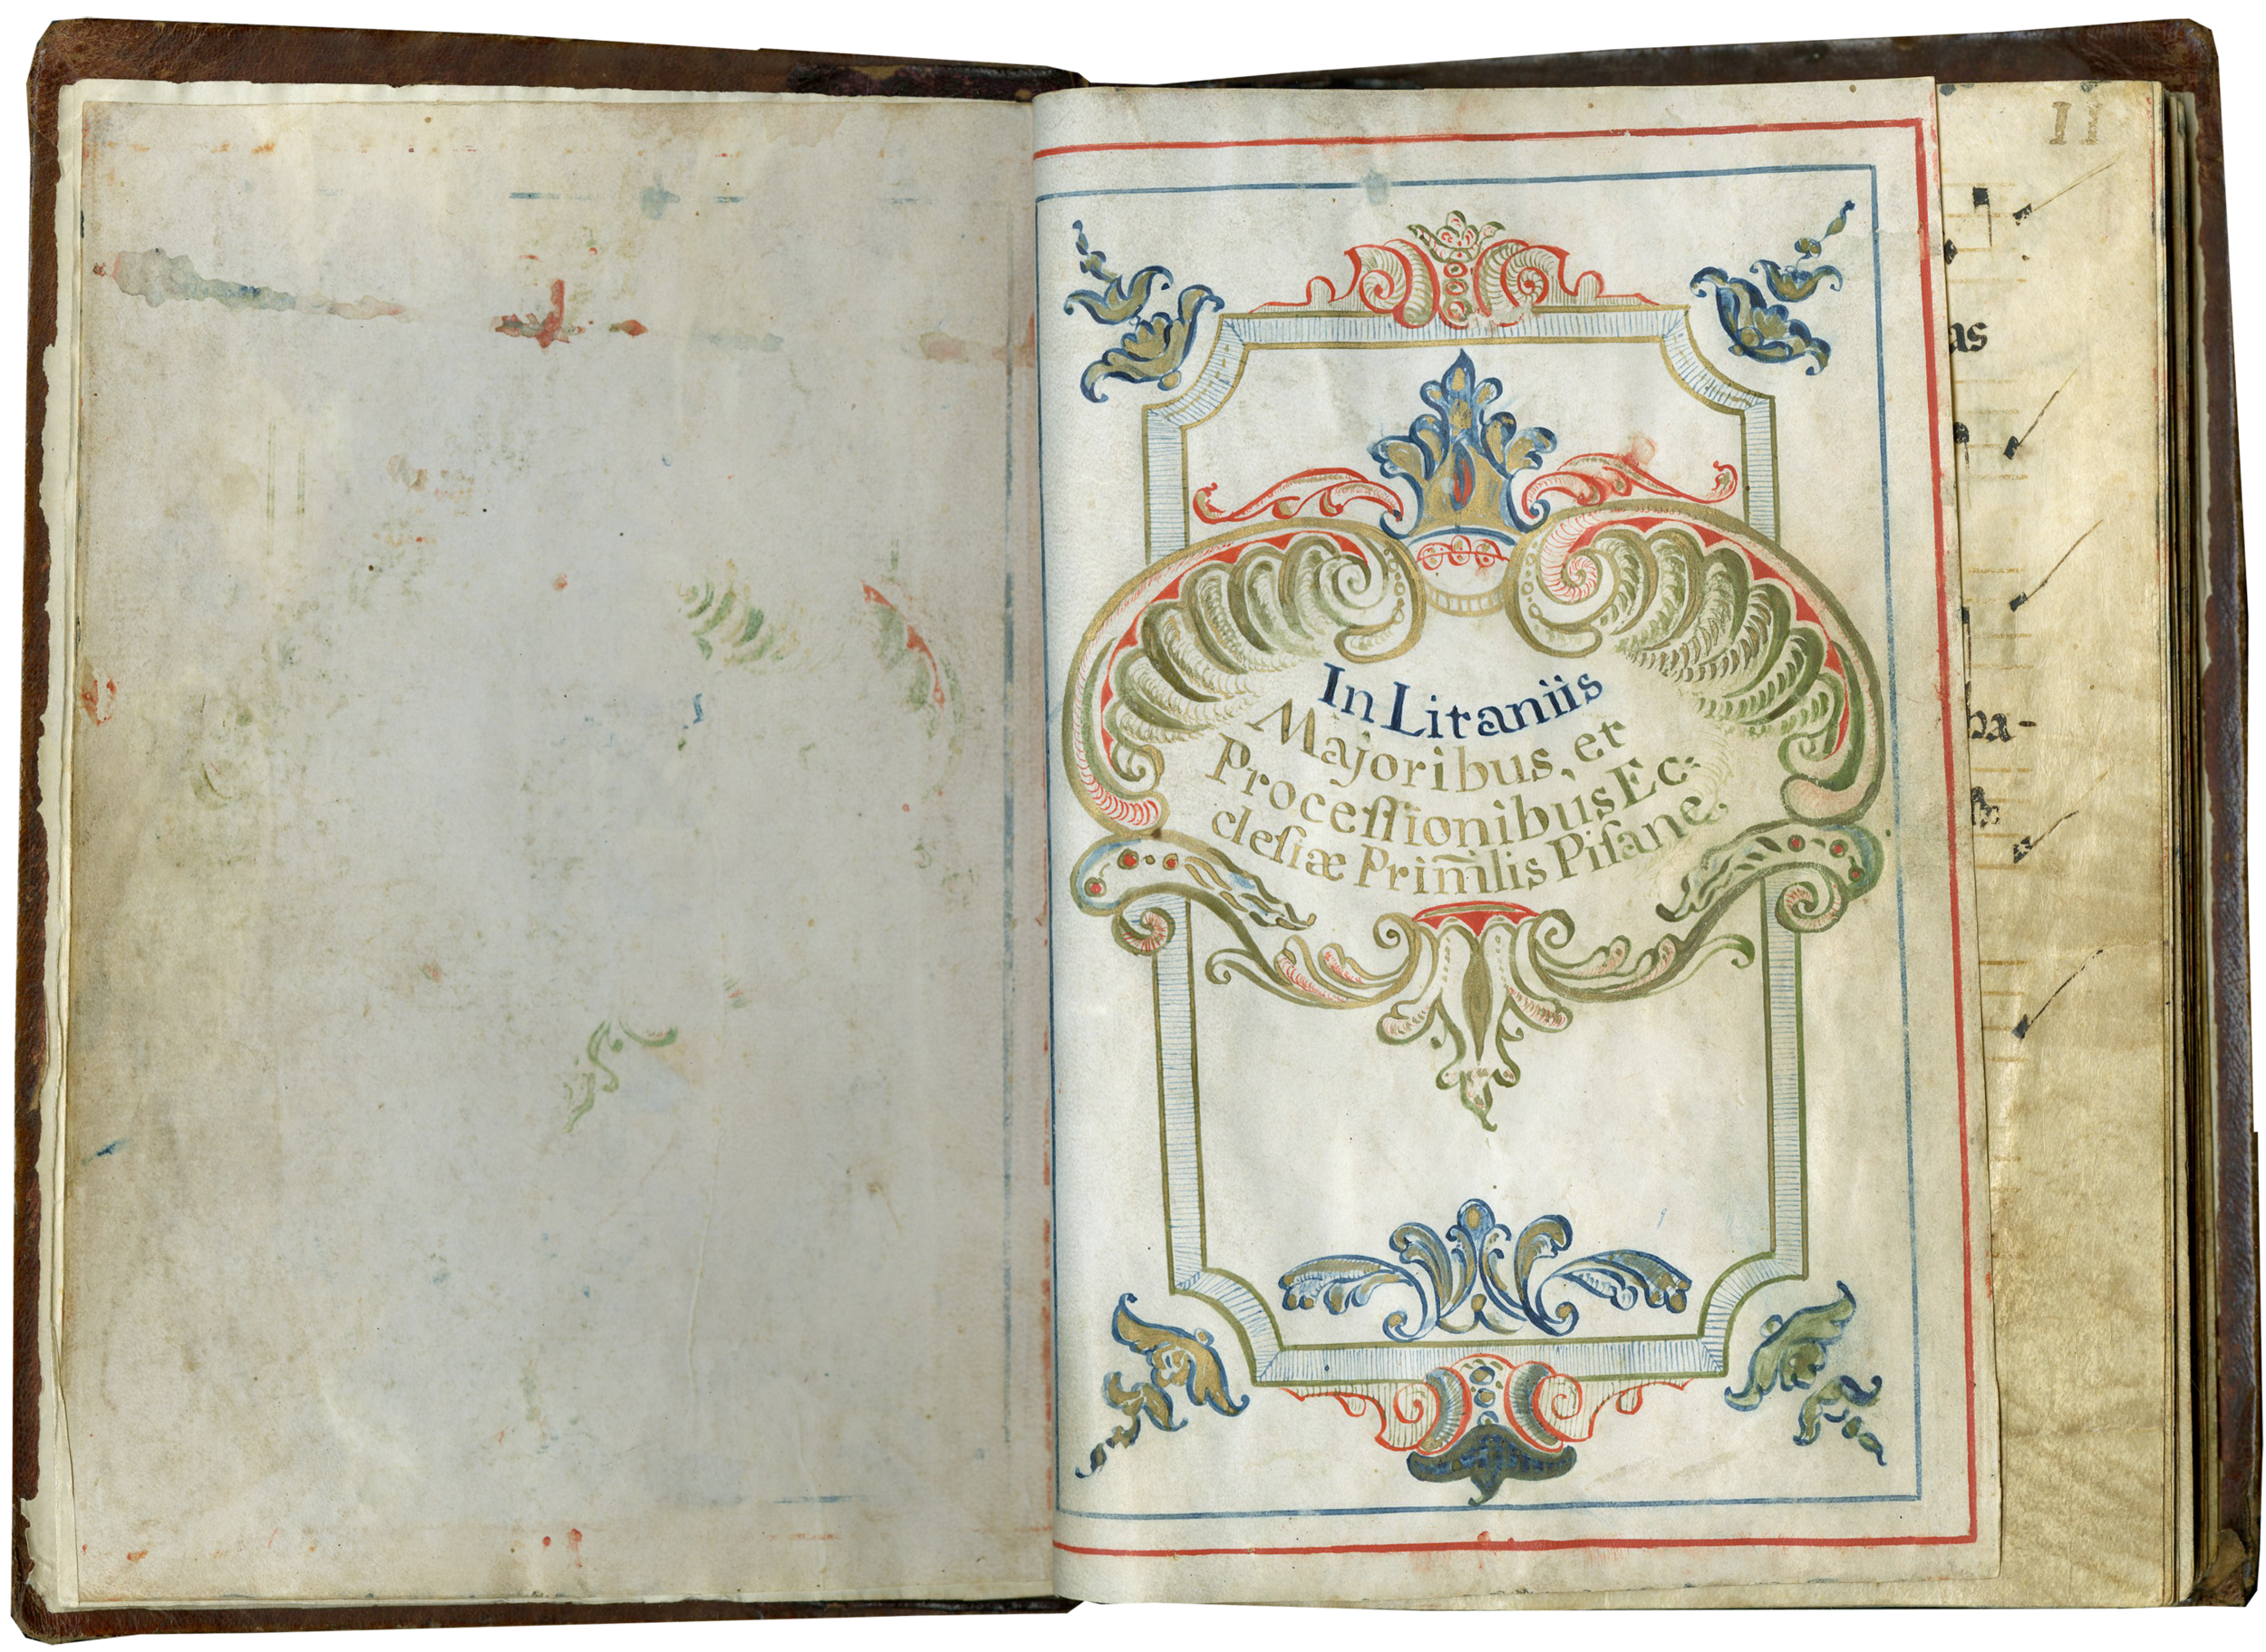 In Litaniis
Majoribus, et
Processionibus Ec-
clesiæ Prim̃lis Pisane
11
as
ba-